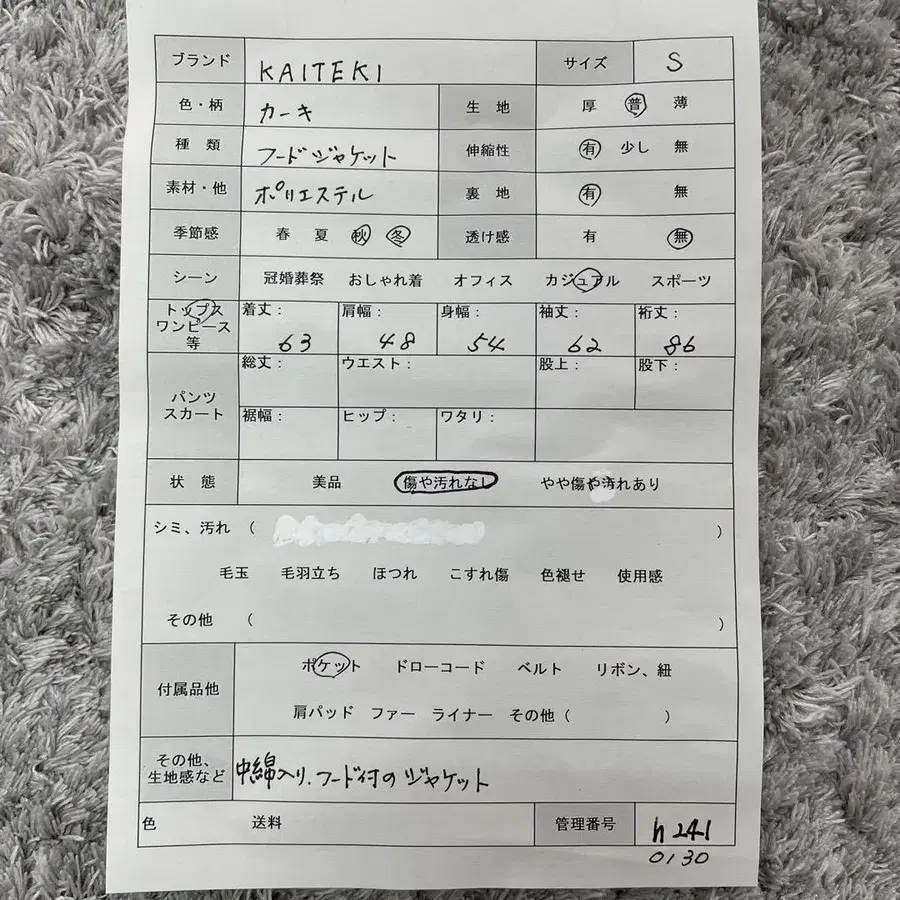 ブランド KAITEKI サイズ S
色・柄 カーキ 生 地 厚 普 薄
種 類 フードジャケット 伸縮性 有 少し 無
素材・他 ポリエステル 裏 地 有 無
季節感 春 夏 秋 冬 透け感 有 無
シーン 冠婚葬祭 おしゃれ着 オフィス カジュアル スポーツ
トップス
ワンピース
等
着丈： 肩幅： 身幅： 袖丈： 裄丈：
63 48 54 62 86
パンツ
スカート
総丈： ウエスト： 股上： 股下：
裾幅： ヒップ： ワタリ：
状 態 美品 傷や汚れなし やや傷や汚れあり
シミ、汚れ （ ）
毛玉 毛羽立ち ほつれ こすれ傷 色褪せ 使用感
その他 （ ）
付属品他
ポケット ドローコード ベルト リボン、紐
肩パッド ファー ライナー その他（ ）
その他、
生地感など
中綿入り.フード付のジャケット
色 送料 管理番号 h241
0130